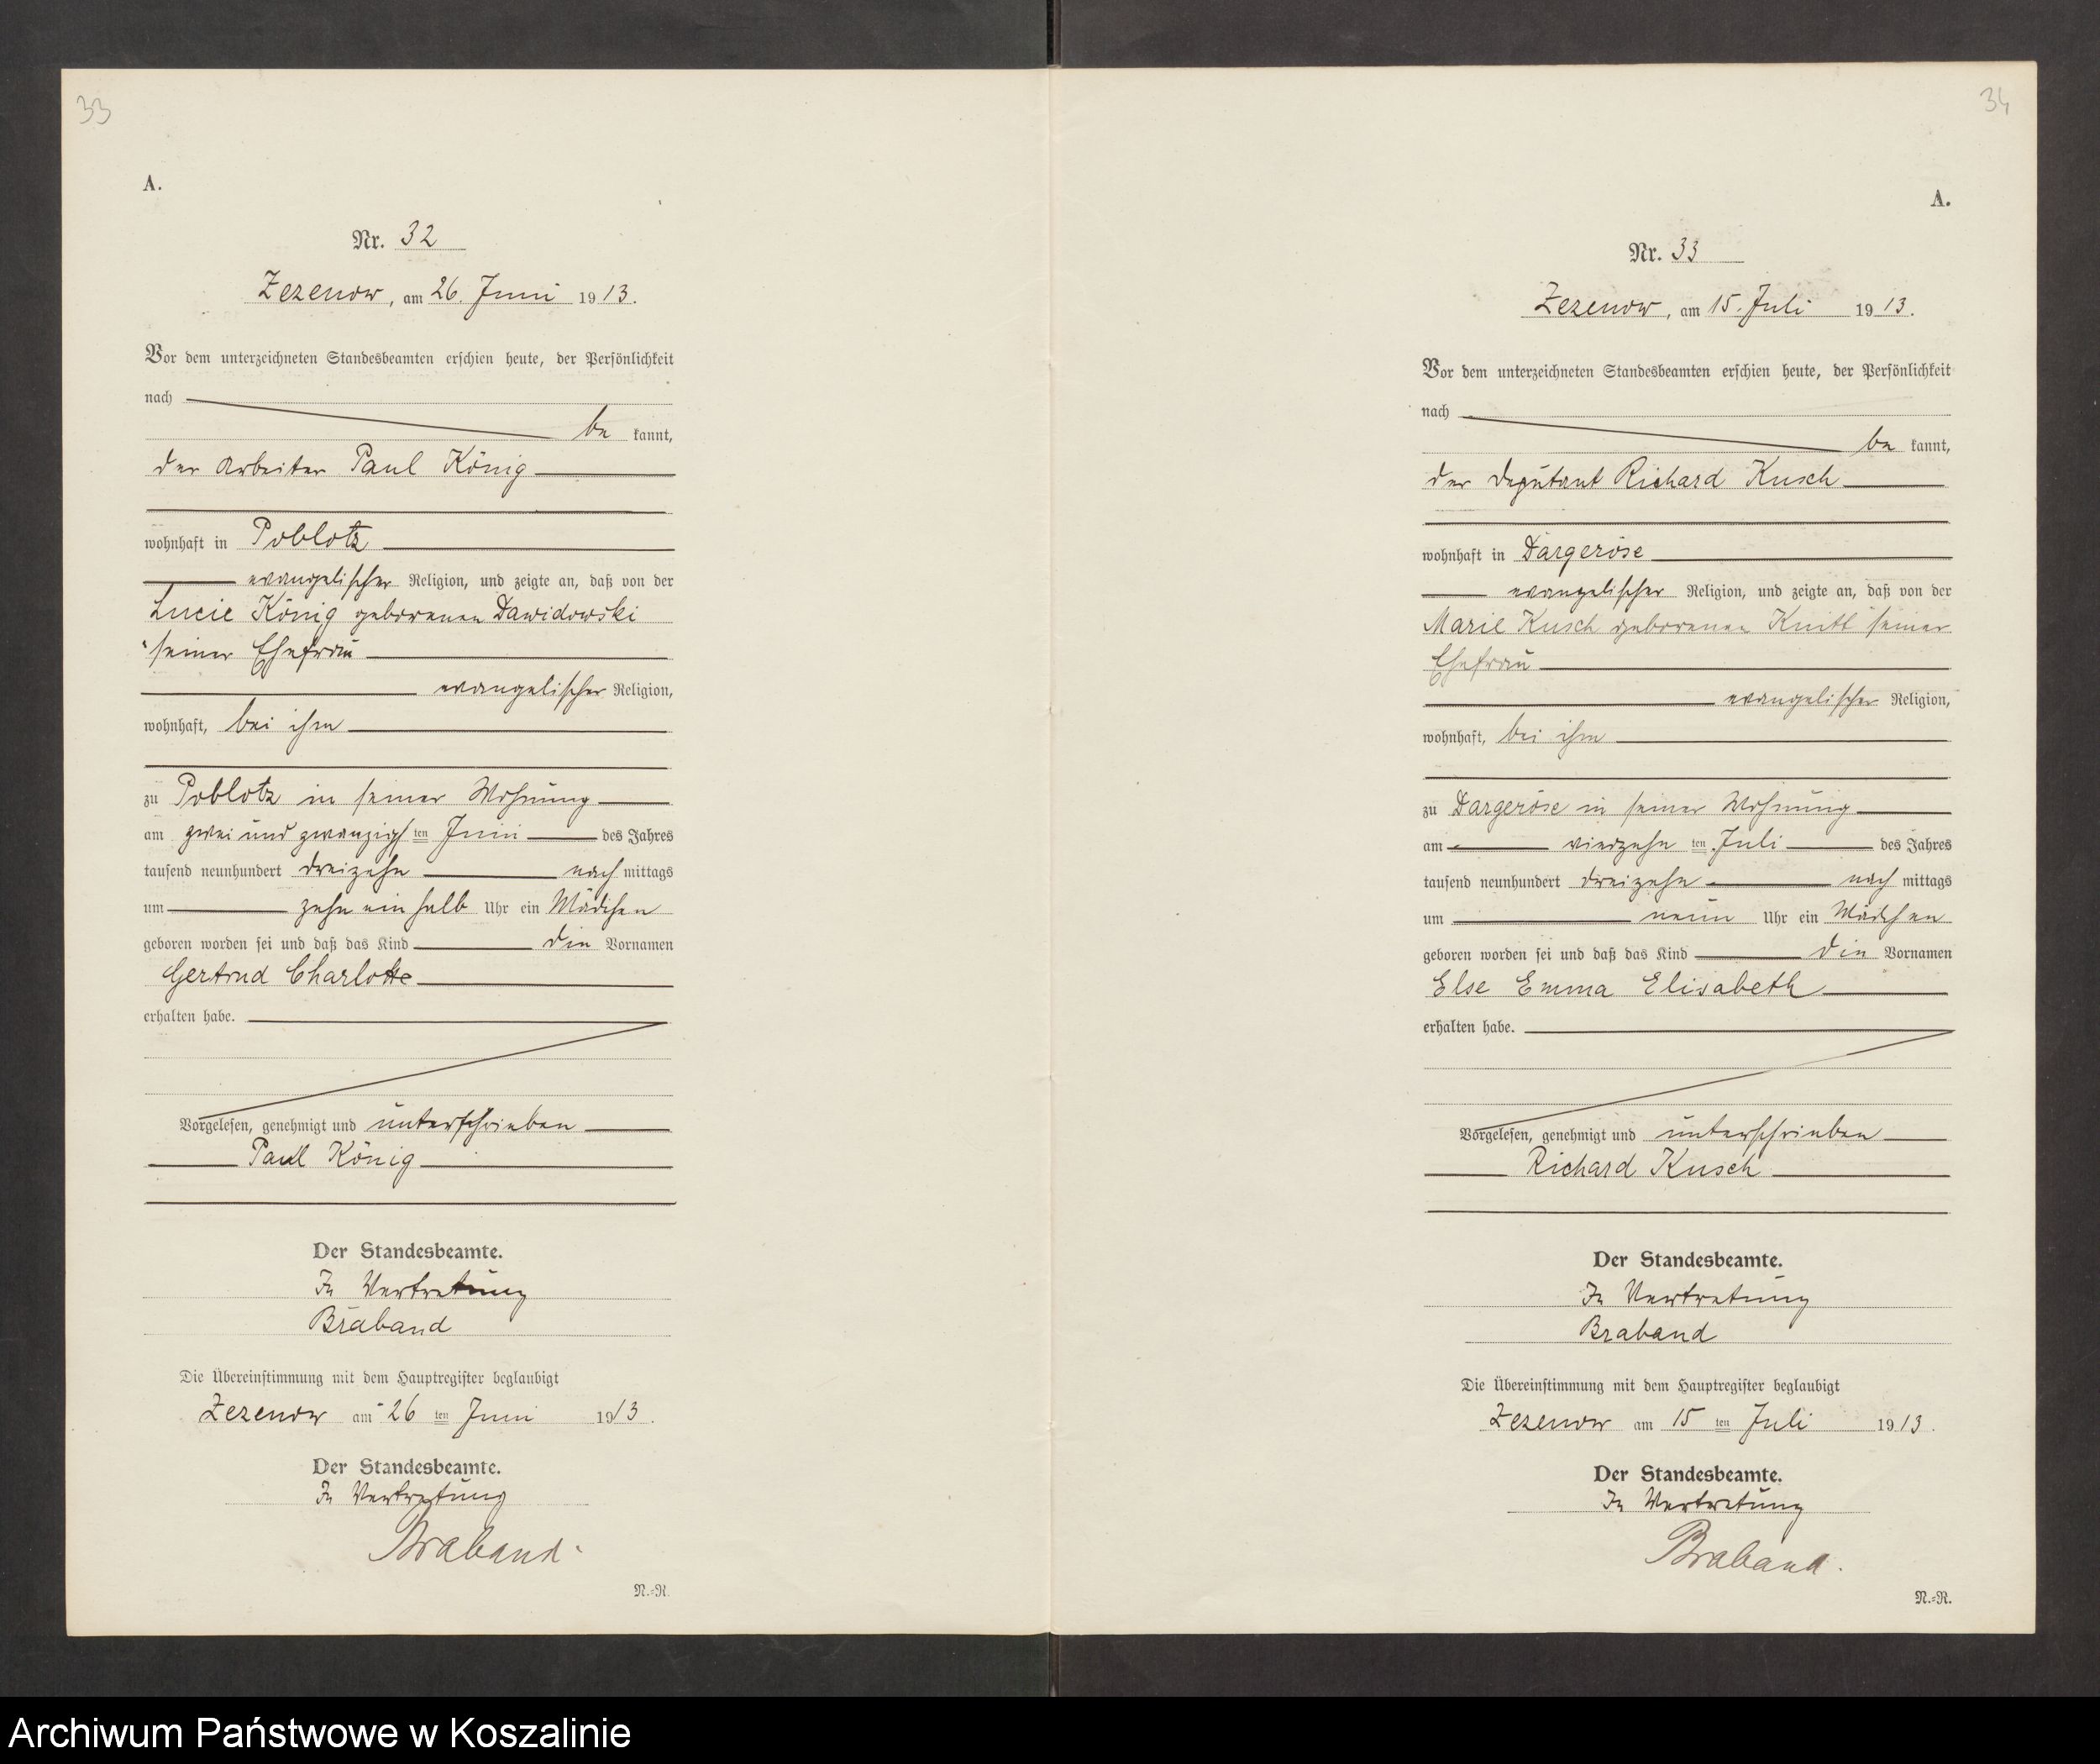 33
A.
Nr. 32
Zezenow, am 26. Juni 1913.
Vor dem unterzeichneten Standesbeamten erschien heute, der Persönlichkeit
nach
be kannt,
der Arbeiter Paul König
wohnhaft in Poblotz
evangelischer Religion, und zeigte an, daß von der
Lucie König geborenen Dawidowski
seiner Ehefrau
evangelischer Religion,
wohnhaft, bei ihm
zu Poblotz in seiner Wohnung
am zwei und zwanzigsten Juni des Jahres
tausend neunhundert dreizehn nach mittags
um zehn ein halb Uhr ein Mädchen
geboren worden sei und daß das Kind die Vornamen
Gertrud Charlotte
erhalten habe.
Vorgelesen, genehmigt und unterschrieben
Paul König
Der Standesbeamte.
In Vertretung
Braband
Die Übereinstimmung mit dem Hauptregister beglaubigt
Zezenow am 26 ten Juni 1913.
Der Standesbeamte.
In Vertretung
Braband.
N.-R.
34
A.
Nr. 33
Zezenow, am 15. Juli 1913.
Vor dem unterzeichneten Standesbeamten erschien heute, der Persönlichkeit
nach
be kannt,
der Deputant Richard Kusch
wohnhaft in Dargeröse
evangelischer Religion, und zeigte an, daß von der
Marie Kusch geborenen Knitt seiner
Ehefrau
evangelischer Religion,
wohnhaft, bei ihm
zu Dargeröse in seiner Wohnung
am vierzehn ten Juli des Jahres
tausend neunhundert dreizehn nach mittags
um neun Uhr ein Mädchen
geboren worden sei und daß das Kind die Vornamen
Else Emma Elisabeth
erhalten habe.
Vorgelesen, genehmigt und unterschrieben
Richard Kusch
Der Standesbeamte.
In Vertretung
Braband
Die Übereinstimmung mit dem Hauptregister beglaubigt
Zezenow am 15 ten Juli 1913.
Der Standesbeamte.
In Vertretung
Braband.
N.-R.
Archiwum Państwowe w Koszalinie